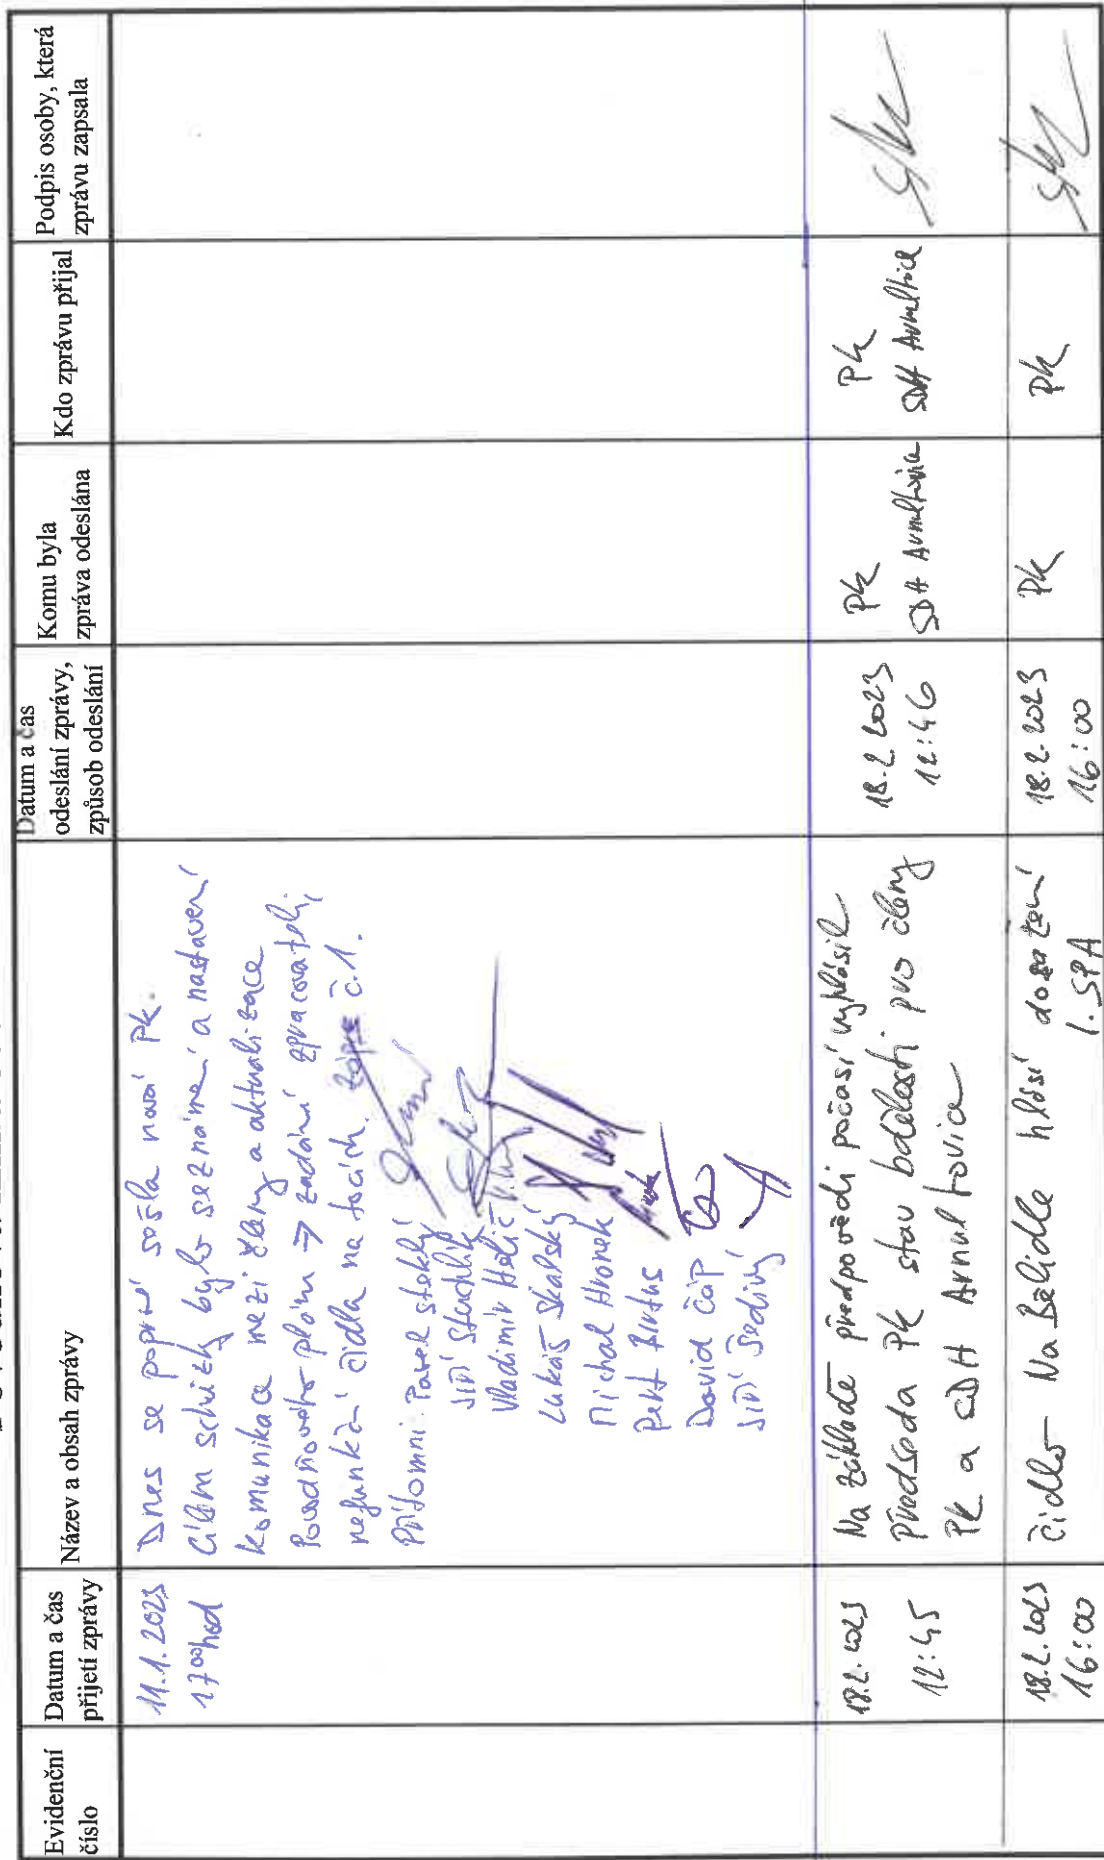 Evidenční
číslo
Datum a čas
přijetí zprávy
Název a obsah zprávy
Datum a čas
odeslání zprávy,
způsob odeslání
Komu byla
zpráva odeslána
Kdo zprávu přijal
Podpis osoby, která
zprávu zapsala
11.1.2023
17⁰⁰hod
Dnes se poprvé sešla nová PK.
Cílem schůzky bylo seznámení a nastavení
komunikace mezi členy a aktualizace
Povodňového plánu → zadání zpracovateli,
nefunkční čidla na tocích. č.1.
Přítomni: Pavel Steklý
Jiří Stuchlík
Vladimír Helic
Lukáš Skalský
Michal Hronek
Petr Brutus
David Čáp
Jiří Šedivý
18.2.2023
12:45
Na základě předpovědi počasí vyhlásil
předseda PK stav bdělosti pro členy
PK a SDH Arnultovice
18.2.2023
12:46
PK
SDH Arnultovice
PK
SDH Arnultovice
18.2.2023
16:00
Čidlo - Na Bělidle hlásí dosažení
1. SPA
18.2.2023
16:00
PK
PK